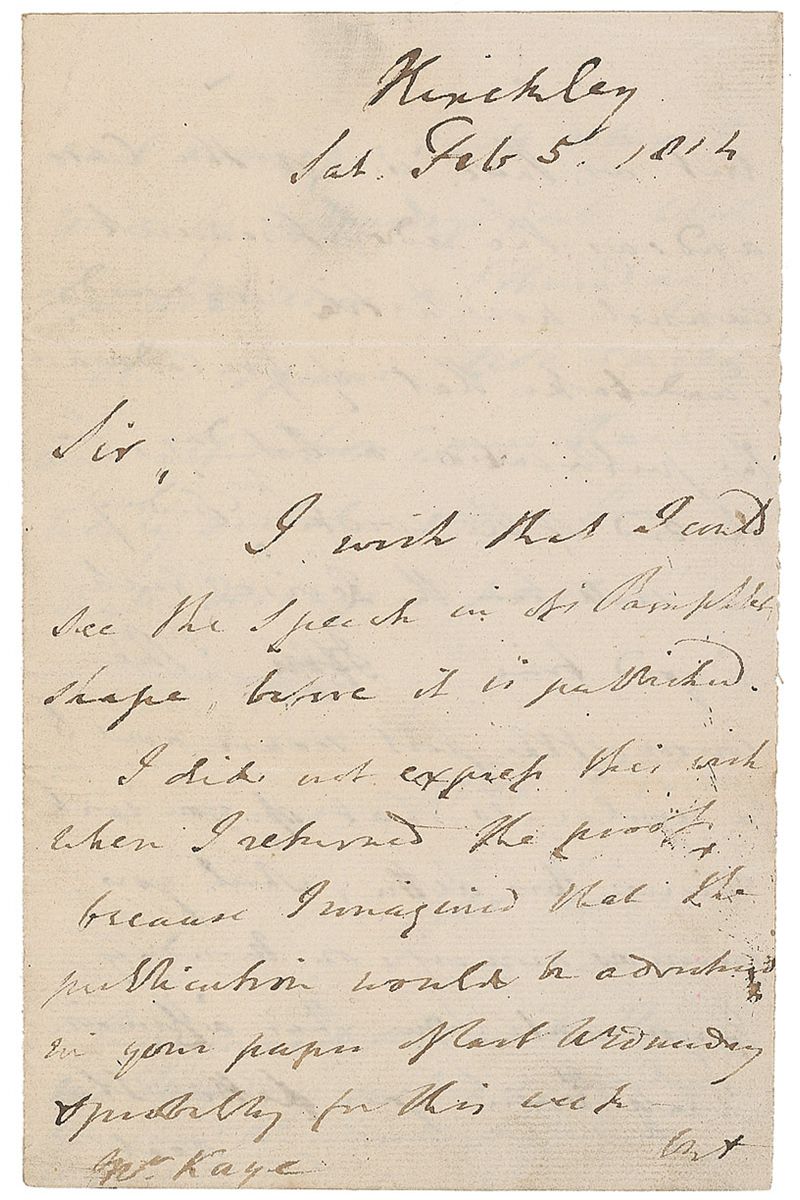 Hinckley
Sat. Feb 5. 1814
Sir,
I wish that I could
see the speech in its Pamphlet
shape, before it is published.
I did not express this wish
when I returned the proof,
because I imagined that the
publication would be advertised
in your paper of last Wednesday
& probably for this week
Mr. Kaye
but